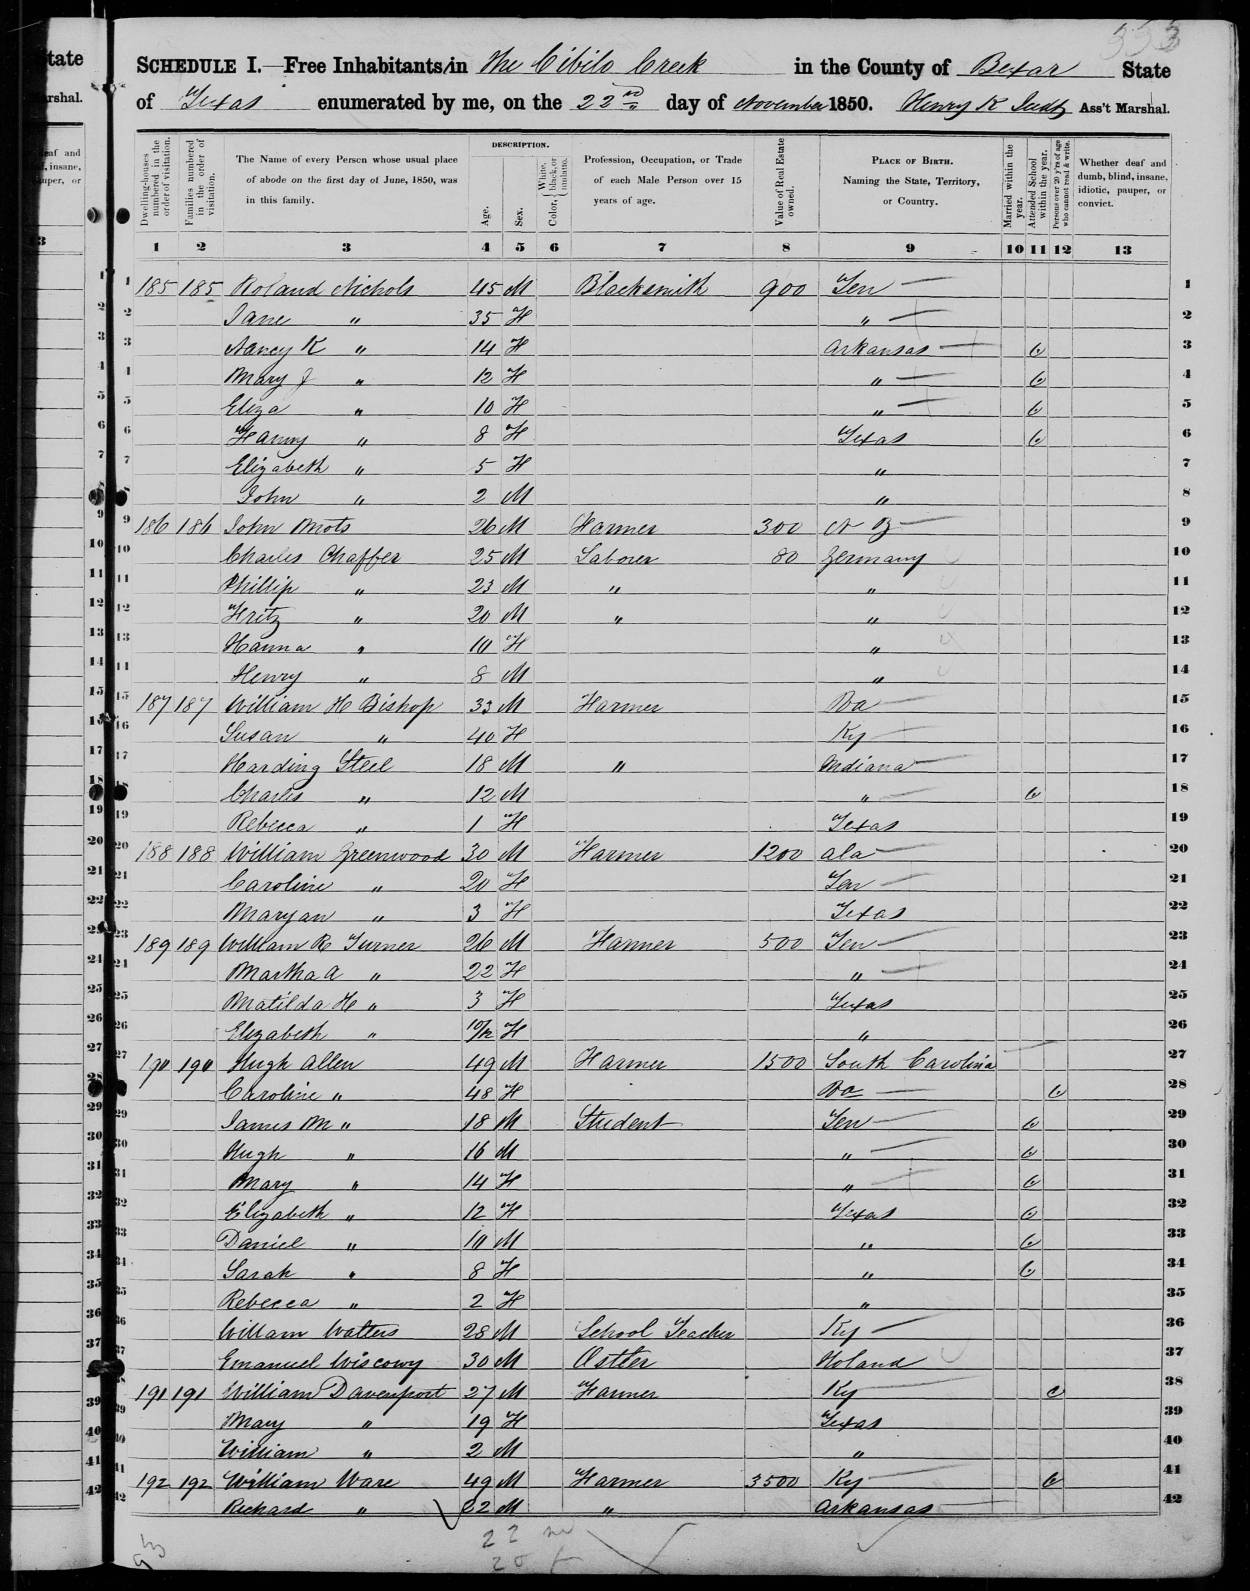 333
SCHEDULE I.—Free Inhabitants in The Cibilo Creek in the County of Bexar State
of Texas enumerated by me, on the 22nd day of November 1850. Henry K Ass't Marshal.
DESCRIPTION.
Dwelling-houses numbered in the order of visitation.
Families numbered in the order of visitation.
The Name of every Person whose usual place of abode on the first day of June, 1850, was in this family.
Age.
Sex.
Color, White, black, or mulatto.
Profession, Occupation, or Trade of each Male Person over 15 years of age.
Value of Real Estate owned.
PLACE OF BIRTH. Naming the State, Territory, or Country.
Married within the year.
Attended School within the year.
Persons over 20 y'rs of age who cannot read & write.
Whether deaf and dumb, blind, insane, idiotic, pauper, or convict.
1 2 3 4 5 6 7 8 9 10 11 12 13
1 185 185 Roland Nichols 45 M Blacksmith 900 Ten 1
2 Jane " 35 F " 2
3 Nancy K " 14 F Arkansas 3
4 Mary J " 12 F " 4
5 Eliza " 10 F " 5
6 Fanny " 8 F Texas 6
7 Elizabeth " 5 F " 7
8 John " 2 M " 8
9 186 186 John Mots 26 M Farmer 300 N Y 9
10 Charles Chaffer 25 M Laborer 80 Germany 10
11 Phillip " 23 M " " 11
12 Fritz " 20 M " " 12
13 Hanna " 10 F " 13
14 Henry " 8 M " 14
15 187 187 William H Bishop 33 M Farmer Va 15
16 Susan " 40 F Ky 16
17 Harding Steel 18 M " Indiana 17
18 Charles " 12 M " 18
19 Rebecca " 1 F Texas 19
20 188 188 William Greenwood 30 M Farmer 1200 Ala 20
21 Caroline " 20 F Ten 21
22 Maryan " 3 F Texas 22
23 189 189 William R Turner 26 M Farmer 500 Ten 23
24 Martha A " 22 F " 24
25 Matilda F " 3 F Texas 25
26 Elizabeth " 10/12 F " 26
27 190 190 Hugh Allen 49 M Farmer 1500 South Carolina 27
28 Caroline " 48 F Va 28
29 James M " 18 M Student Ten 29
30 Hugh " 16 M " 30
31 Mary " 14 F " 31
32 Elizabeth " 12 F Texas 32
33 Daniel " 10 M " 33
34 Sarah " 8 F " 34
35 Rebecca " 2 F " 35
36 William Walters 28 M School Teacher Ky 36
37 Emanuel Wiscowy 30 M Ostler Holand 37
38 191 191 William Davenport 27 M Farmer Ky 38
39 Mary " 19 F Texas 39
40 William " 2 M " 40
41 192 192 William Ware 49 M Farmer 3500 Ky 41
42 Richard " 22 M " Arkansas 42
22 m
20 f